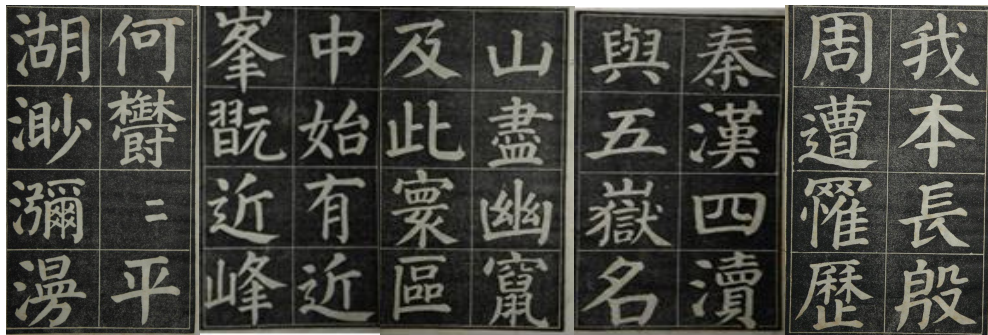 我本長殷
周遭罹歷
秦漢四瀆
與五嶽名
山盡幽竄
及此寰區
中始有近
峯翫近峰
何鬱二平
湖渺瀰漫